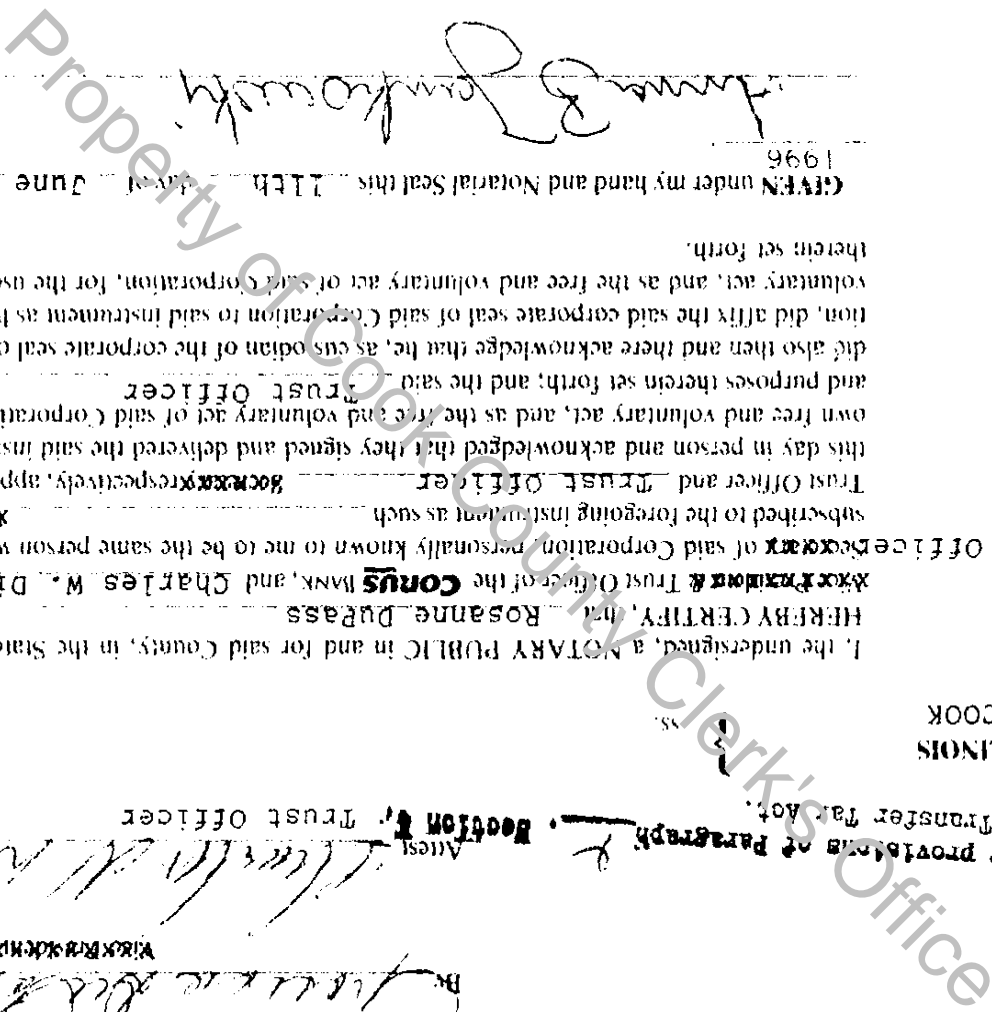 By
provisions of Paragraph ___. Section 4,
Attest
Transfer Tax Act.
Trust Officer
LINOIS
COOK
SS.
I, the undersigned, a NOTARY PUBLIC in and for said County, in the State
HEREBY CERTIFY, that Rosanne DuPass
Trust Officer of the CORUS BANK, and Charles W. D
Officer of said Corporation, personally known to me to be the same person w
subscribed to the foregoing instrument as such
Trust Officer and Trust Officer respectively, app
this day in person and acknowledged that they signed and delivered the said ins
own free and voluntary act, and as the free and voluntary act of said Corporati
and purposes therein set forth; and the said Trust Officer
did also then and there acknowledge that he, as custodian of the corporate seal o
tion, did affix the said corporate seal of said Corporation to said instrument as h
voluntary act, and as the free and voluntary act of said Corporation, for the use
therein set forth.
GIVEN under my hand and Notarial Seal this 11th day of June
1996
Property of Cook County Clerk's Office